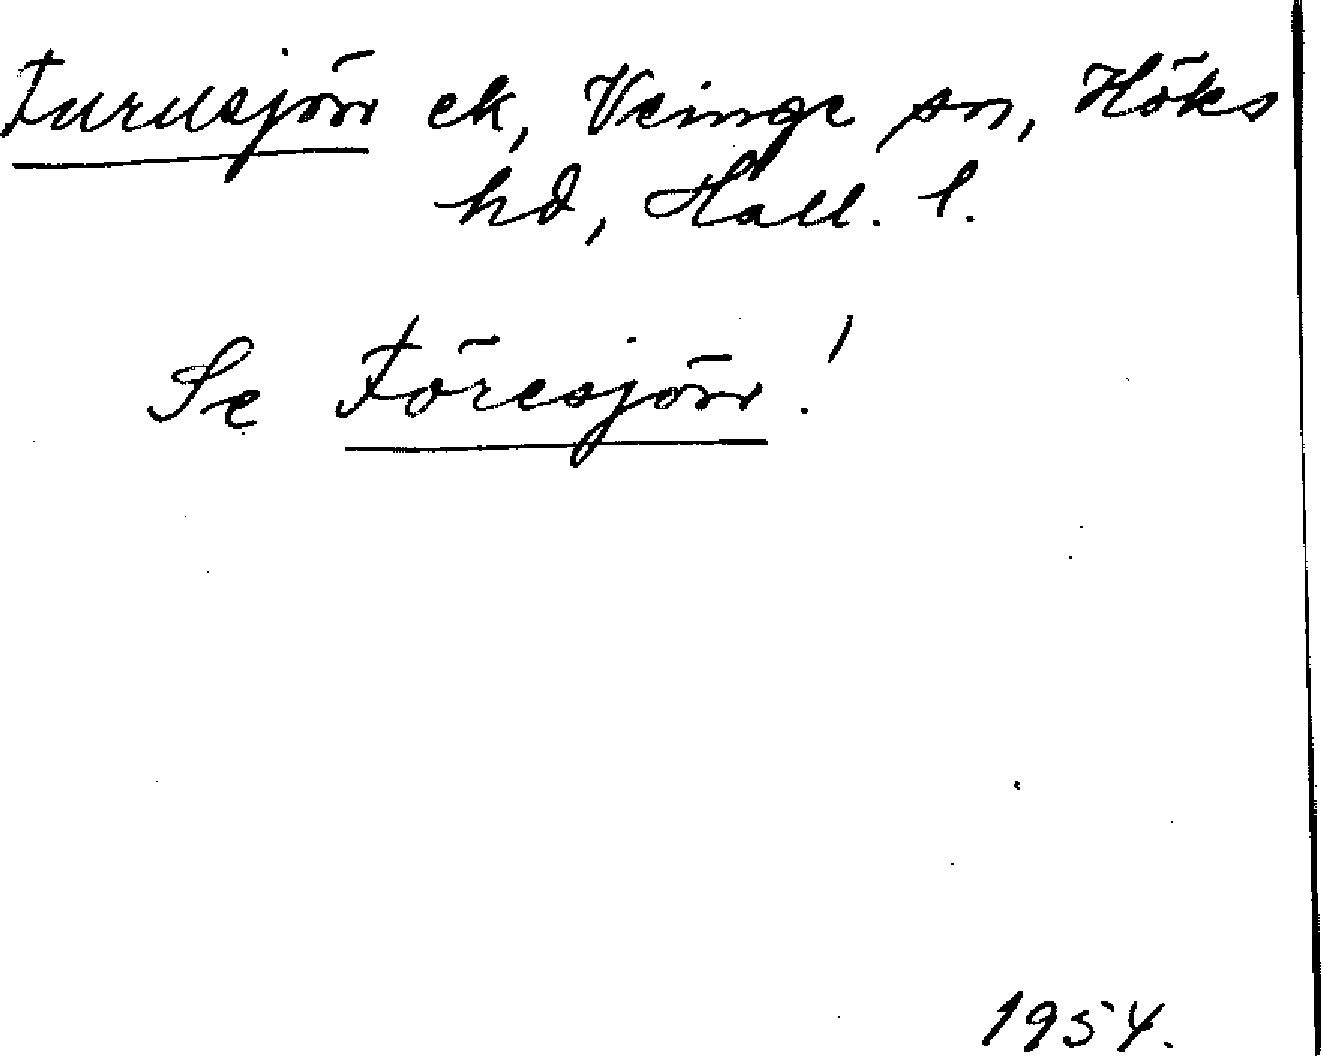 Furusjön ek, Veinge sn, Höks
hd, Hall. l.
Se Föresjön!
1954.